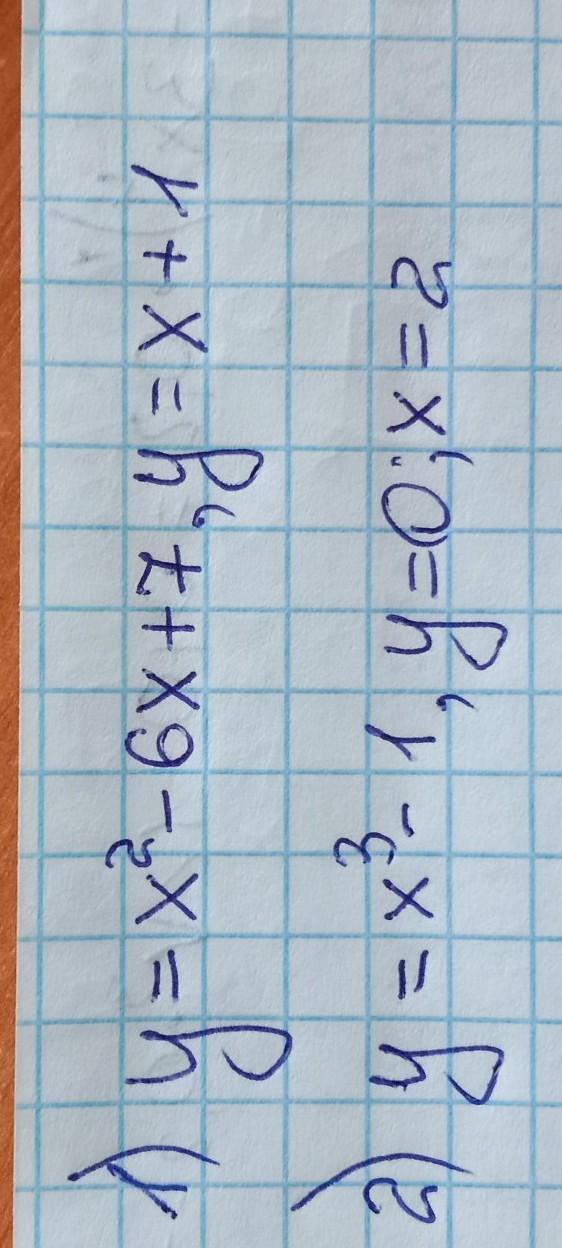 1) y = x² - 6x + 7, y = x + 1
2) y = x³ - 1, y = 0; x = 2